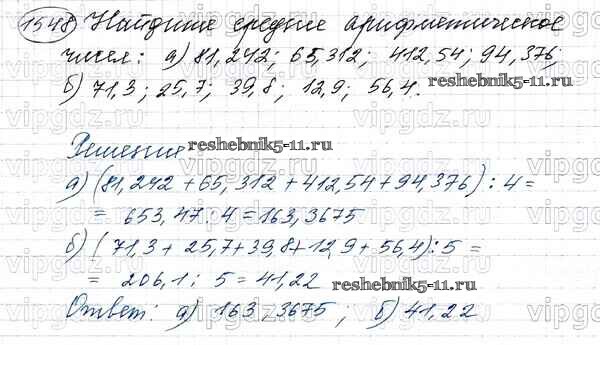 1548 Найдите среднее арифметическое
чисел: а) 81,242; 65,312; 412,54; 94,376;
б) 71,3; 25,7; 39,8; 12,9; 56,4.
reshebnik5-11.ru
Решение
reshebnik5-11.ru
а) (81,242 + 65,312 + 412,54 + 94,376) : 4 =
= 653,47 : 4 = 163,3675
б) (71,3 + 25,7 + 39,8 + 12,9 + 56,4) : 5 =
= 206,1 : 5 = 41,22
reshebnik5-11.ru
Ответ: а) 163,3675; б) 41,22
reshebnik5-11.ru